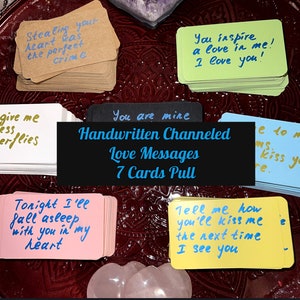 Stealing your
heart was
the perfect
crime
You inspire
a love in me!
I love you!
give me
You are mine
Handwritten Channeled
Love Messages
7 Cards Pull
Tonight I'll
fall asleep
with you in my
heart
Tell me how
you'll kiss me
the next time
I see you